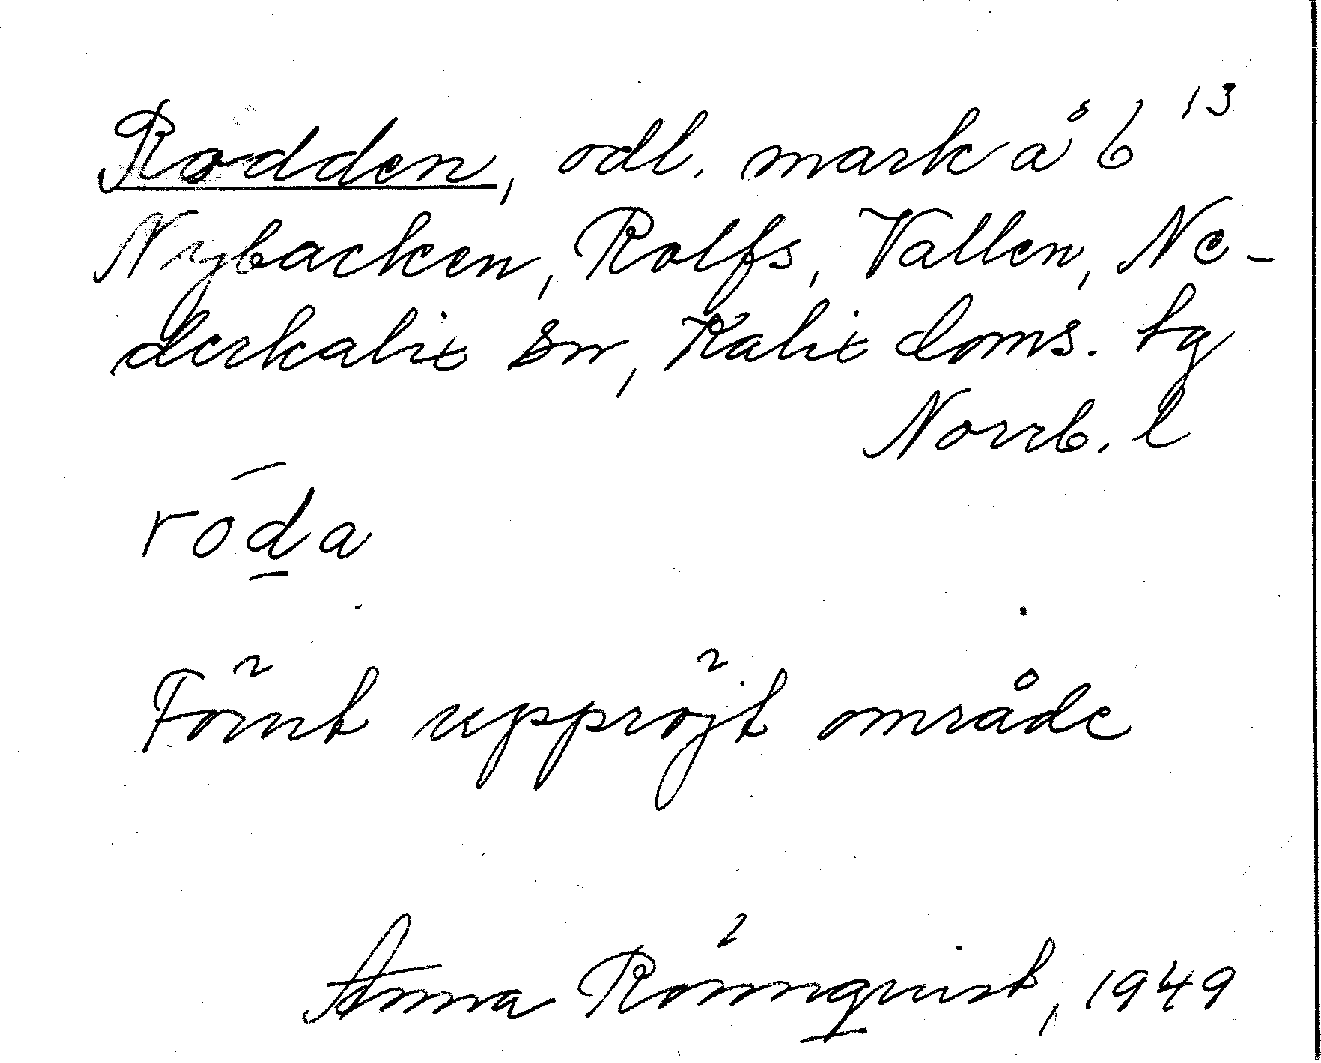 Rodden, odl. mark å 6¹³
Nybacken, Rolfs, Vallen, Ne-
derkalix sn, Kalix doms. tg
Norrb. l
rōd̲a
Förnt uppröjt område
Anna Rönnqvist, 1949